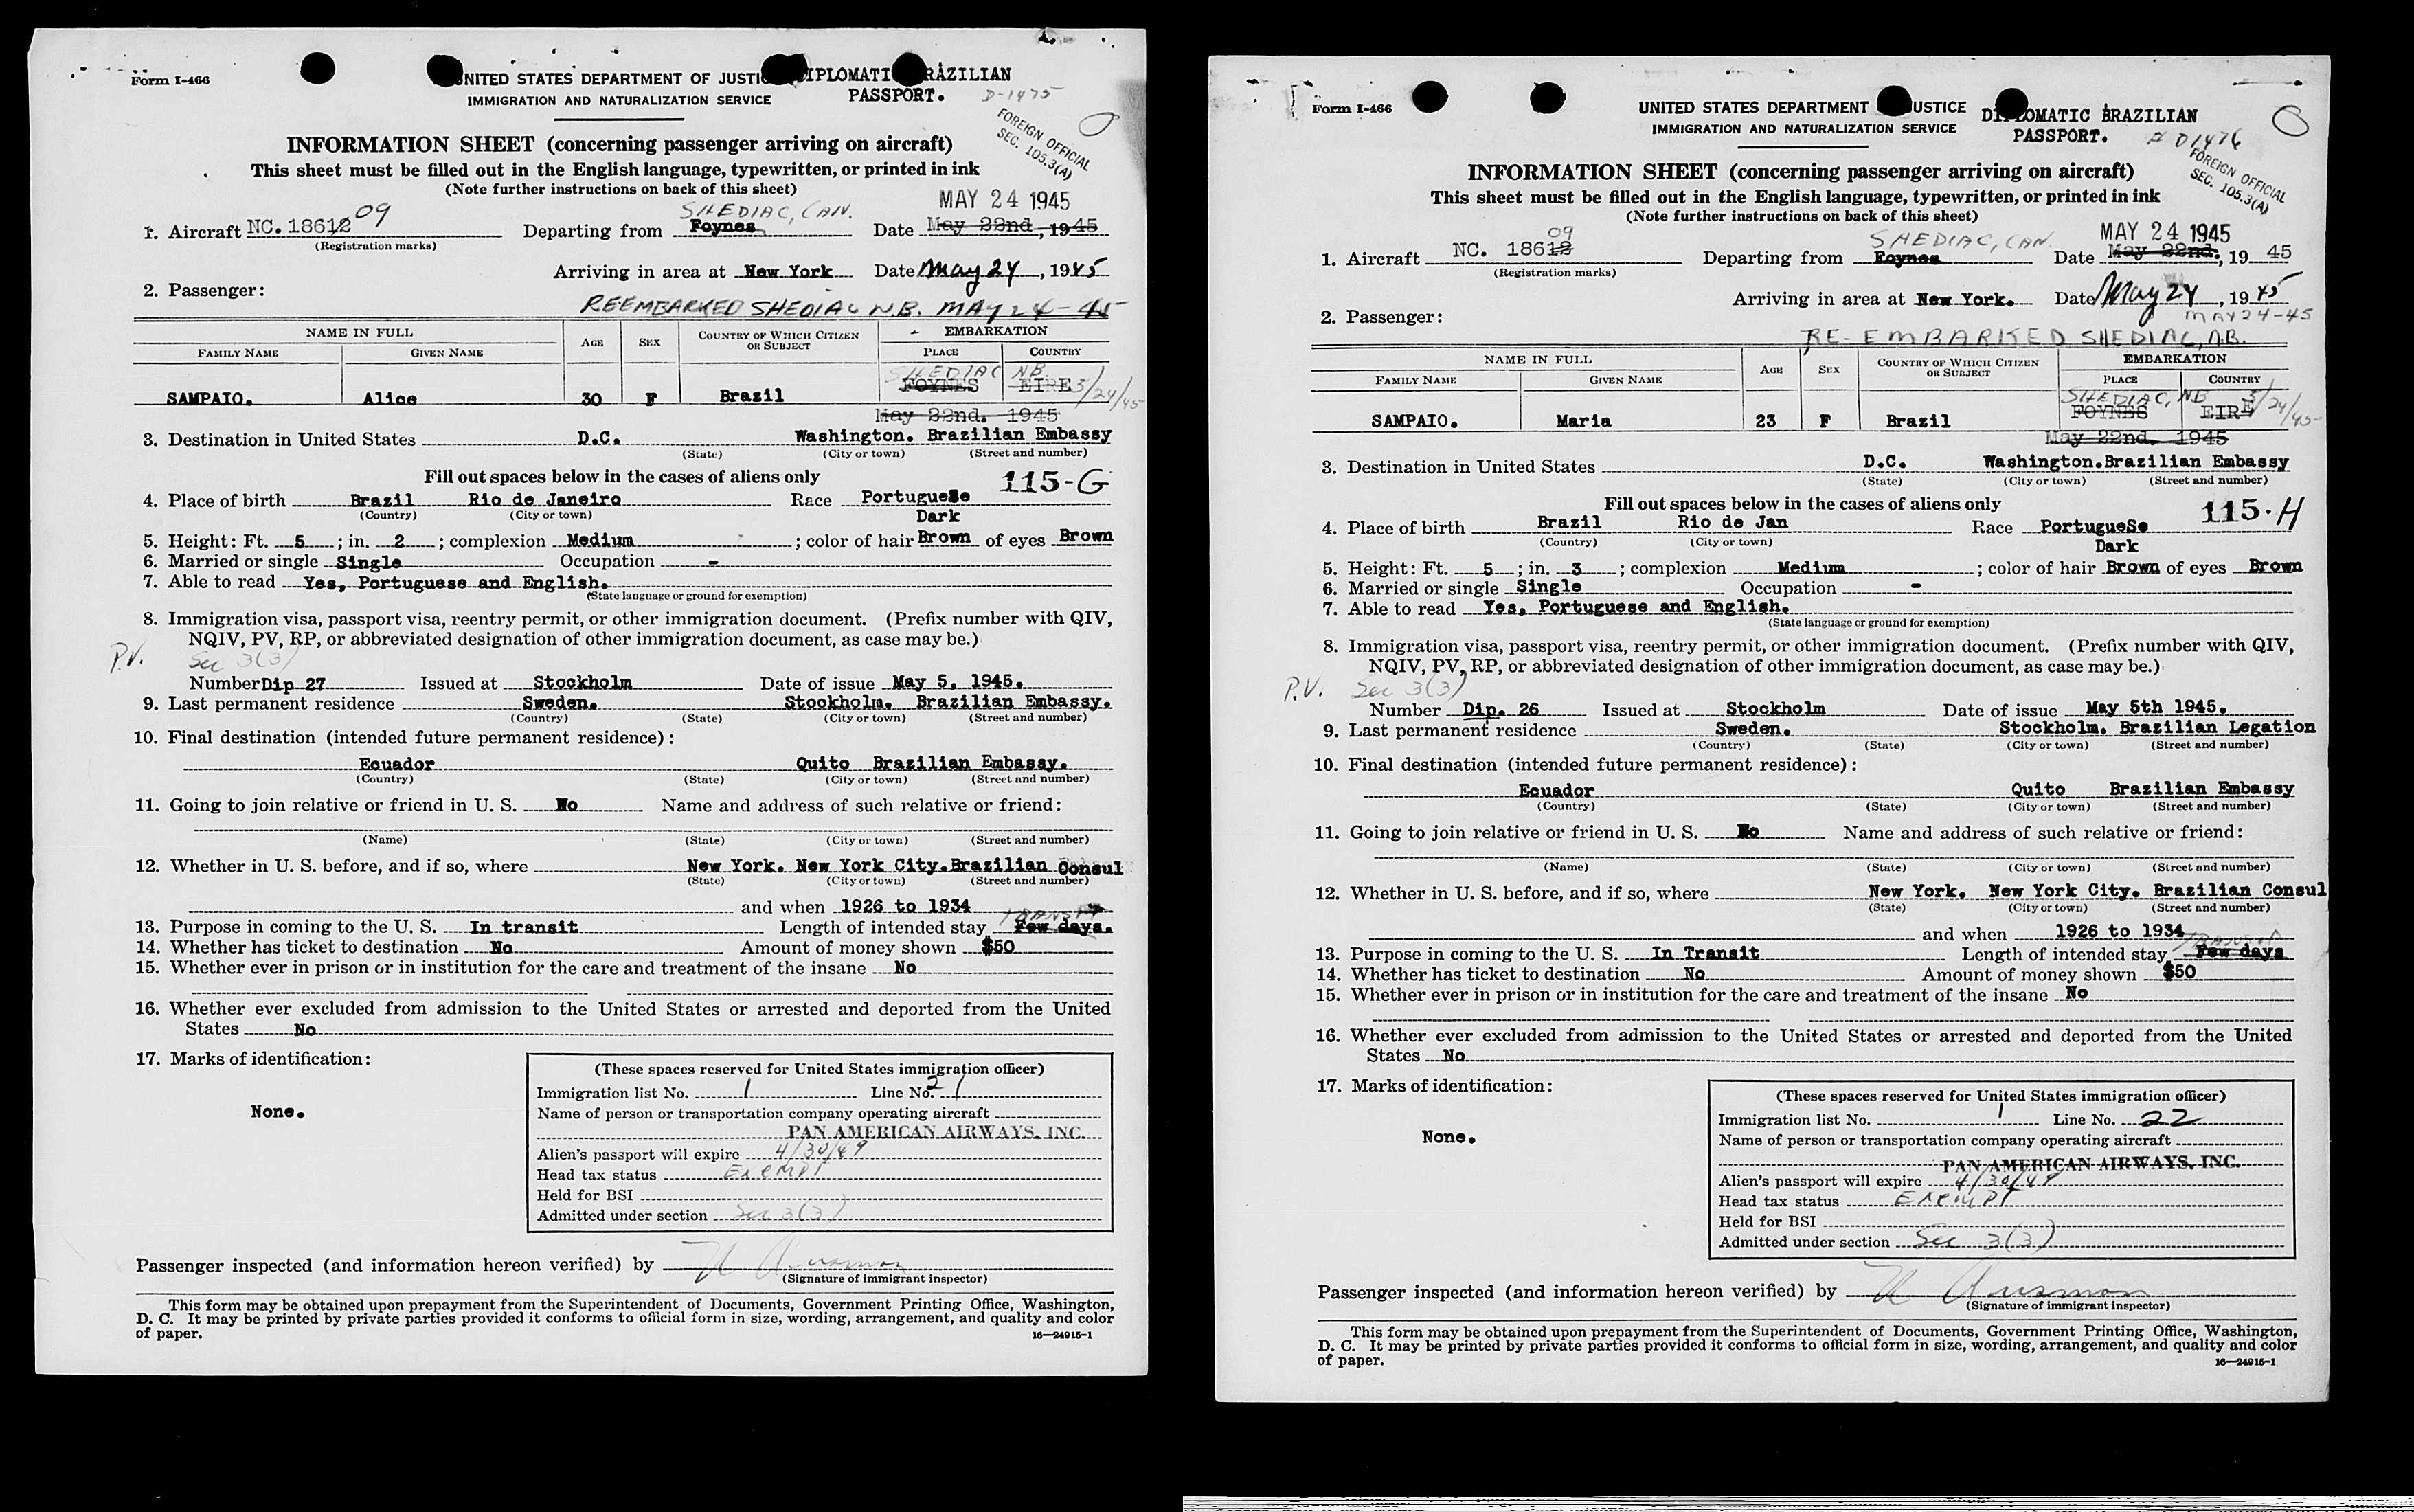 Form I-466
UNITED STATES DEPARTMENT OF JUSTICE
DIPLOMATIC BRAZILIAN
IMMIGRATION AND NATURALIZATION SERVICE
PASSPORT.
D-1475
FOREIGN OFFICIAL
SEC. 105.3(A)
INFORMATION SHEET (concerning passenger arriving on aircraft)
This sheet must be filled out in the English language, typewritten, or printed in ink
(Note further instructions on back of this sheet)
MAY 24 1945
SHEDIAC, CAN.
1. Aircraft NC. 18612 09 Departing from Foynes Date May 22nd, 1945
(Registration marks)
Arriving in area at New York Date May 24, 1945
2. Passenger:
REEMBARKED SHEDIAC N.B. MAY 24-45
NAME IN FULL AGE SEX COUNTRY OF WHICH CITIZEN OR SUBJECT EMBARKATION
FAMILY NAME GIVEN NAME PLACE COUNTRY
SHEDIAC NB
SAMPAIO. Alice 30 F Brazil FOYNES EIRE 5/24/45
May 22nd. 1945
3. Destination in United States D.C. Washington. Brazilian Embassy
(State) (City or town) (Street and number)
Fill out spaces below in the cases of aliens only
115-G
4. Place of birth Brazil Rio de Janeiro Race Portuguese
(Country) (City or town)
Dark
5. Height: Ft. 5; in. 2; complexion Medium; color of hair Brown of eyes Brown
6. Married or single Single Occupation -
7. Able to read Yes, Portuguese and English.
(State language or ground for exemption)
8. Immigration visa, passport visa, reentry permit, or other immigration document. (Prefix number with QIV,
NQIV, PV, RP, or abbreviated designation of other immigration document, as case may be.)
P.V. Sec 3(3)
Number Dip 27 Issued at Stockholm Date of issue May 5, 1945.
9. Last permanent residence Sweden. Stockholm. Brazilian Embassy.
(Country) (State) (City or town) (Street and number)
10. Final destination (intended future permanent residence):
Ecuador Quito Brazilian Embassy.
(Country) (State) (City or town) (Street and number)
11. Going to join relative or friend in U. S. No Name and address of such relative or friend:
(Name) (State) (City or town) (Street and number)
12. Whether in U. S. before, and if so, where New York. New York City. Brazilian Consul
(State) (City or town) (Street and number)
and when 1926 to 1934
TRANSIT
13. Purpose in coming to the U. S. In transit Length of intended stay Few days.
14. Whether has ticket to destination No Amount of money shown $50
15. Whether ever in prison or in institution for the care and treatment of the insane No
16. Whether ever excluded from admission to the United States or arrested and deported from the United
States No
17. Marks of identification:
None.
(These spaces reserved for United States immigration officer)
Immigration list No. 1 Line No. 21
Name of person or transportation company operating aircraft
PAN AMERICAN AIRWAYS. INC.
Alien's passport will expire 4/30/49
Head tax status Exempt
Held for BSI
Admitted under section Sec 3(3)
Passenger inspected (and information hereon verified) by
(Signature of immigrant inspector)
This form may be obtained upon prepayment from the Superintendent of Documents, Government Printing Office, Washington,
D. C. It may be printed by private parties provided it conforms to official form in size, wording, arrangement, and quality and color
of paper.
16—24915-1
Form I-466
UNITED STATES DEPARTMENT OF JUSTICE
DIPLOMATIC BRAZILIAN
IMMIGRATION AND NATURALIZATION SERVICE
PASSPORT.
# D1476
FOREIGN OFFICIAL
SEC. 105.3(A)
INFORMATION SHEET (concerning passenger arriving on aircraft)
This sheet must be filled out in the English language, typewritten, or printed in ink
(Note further instructions on back of this sheet)
MAY 24 1945
09 SHEDIAC, CAN.
1. Aircraft NC. 18612 Departing from Foynes Date May 22nd, 1945
(Registration marks)
Arriving in area at New York. Date May 24, 1945
2. Passenger:
MAY 24-45
RE-EMBARKED SHEDIAC, N.B.
NAME IN FULL AGE SEX COUNTRY OF WHICH CITIZEN OR SUBJECT EMBARKATION
FAMILY NAME GIVEN NAME PLACE COUNTRY
SHEDIAC, NB
SAMPAIO. Maria 23 F Brazil FOYNES EIRE 5/24/45
May 22nd. 1945
3. Destination in United States D.C. Washington. Brazilian Embassy
(State) (City or town) (Street and number)
Fill out spaces below in the cases of aliens only
115-H
4. Place of birth Brazil Rio de Jan Race PortugueSe
(Country) (City or town)
Dark
5. Height: Ft. 5; in. 3; complexion Medium; color of hair Brown of eyes Brown
6. Married or single Single Occupation -
7. Able to read Yes, Portuguese and English.
(State language or ground for exemption)
8. Immigration visa, passport visa, reentry permit, or other immigration document. (Prefix number with QIV,
NQIV, PV, RP, or abbreviated designation of other immigration document, as case may be.)
P.V. Sec 3(3)
Number Dip. 26 Issued at Stockholm Date of issue May 5th 1945.
9. Last permanent residence Sweden. Stockholm. Brazilian Legation
(Country) (State) (City or town) (Street and number)
10. Final destination (intended future permanent residence):
Ecuador Quito Brazilian Embassy
(Country) (State) (City or town) (Street and number)
11. Going to join relative or friend in U. S. No Name and address of such relative or friend:
(Name) (State) (City or town) (Street and number)
12. Whether in U. S. before, and if so, where New York. New York City. Brazilian Consul
(State) (City or town) (Street and number)
and when 1926 to 1934
TRANSIT
13. Purpose in coming to the U. S. In Transit Length of intended stay Few days
14. Whether has ticket to destination No Amount of money shown $50
15. Whether ever in prison or in institution for the care and treatment of the insane No
16. Whether ever excluded from admission to the United States or arrested and deported from the United
States No
17. Marks of identification:
None.
(These spaces reserved for United States immigration officer)
Immigration list No. 1 Line No. 22
Name of person or transportation company operating aircraft
PAN AMERICAN AIRWAYS. INC.
Alien's passport will expire 4/30/49
Head tax status Exempt
Held for BSI
Admitted under section Sec 3(3)
Passenger inspected (and information hereon verified) by
(Signature of immigrant inspector)
This form may be obtained upon prepayment from the Superintendent of Documents, Government Printing Office, Washington,
D. C. It may be printed by private parties provided it conforms to official form in size, wording, arrangement, and quality and color
of paper.
16—24915-1